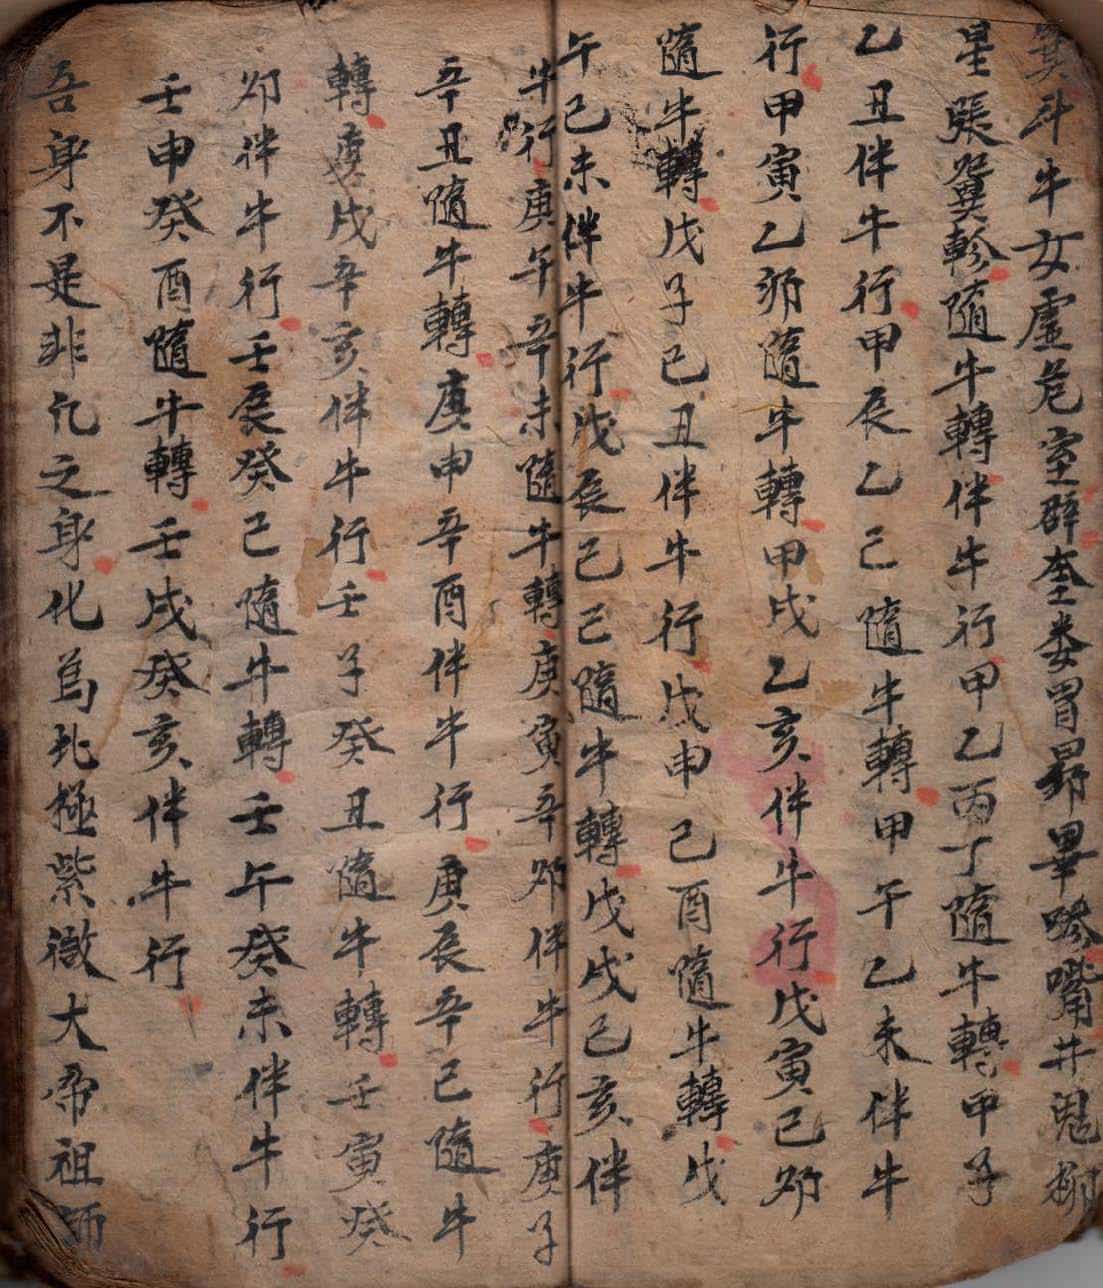 箕斗牛女虛危室辟奎娄胃昴畢嘇嘴井鬼柳
星張翼軫隨牛轉伴牛行甲乙丙丁隨牛轉甲子
乙丑伴牛行甲辰乙己隨牛轉甲午乙未伴牛
行甲寅乙卯隨牛轉甲戌乙亥伴牛行戊寅己卯
隨牛轉戊子己丑伴牛行戊申己酉隨牛轉戊
午己未伴牛行戊辰己己隨牛轉戊戌己亥伴
牛行庚午辛未隨牛轉庚寅辛卯伴牛行庚子
辛丑隨牛轉庚申辛酉伴牛行庚辰辛己隨牛
轉庚戌辛亥伴牛行壬子癸丑隨牛轉壬寅癸
卯伴牛行壬辰癸己隨牛轉壬午癸未伴牛行
壬申癸酉隨牛轉壬戌癸亥伴牛行
吾身不是非凡之身化為北極紫微大帝祖師